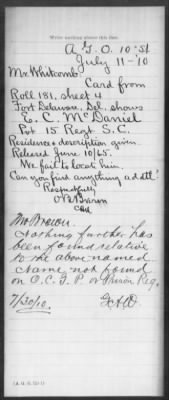 Write nothing above this line.
A. G. O. 10-St
July 11-10
Mr. Whitcomb.
Card from
Roll 181, sheet 4
Fort Delaware, Del. shows
E. C. McDaniel
Pvt 15 Regt S. C.
Residence & description given.
Released June 10/65.
We fail to locate him.
Can you find anything addtl?
Respectfully
Mr. Brown.
Nothing further has
been found relative
to the above named
Name not found
on O. C. G. P. or Prison Reg.
7/30/10.
(A. G. O. 121)